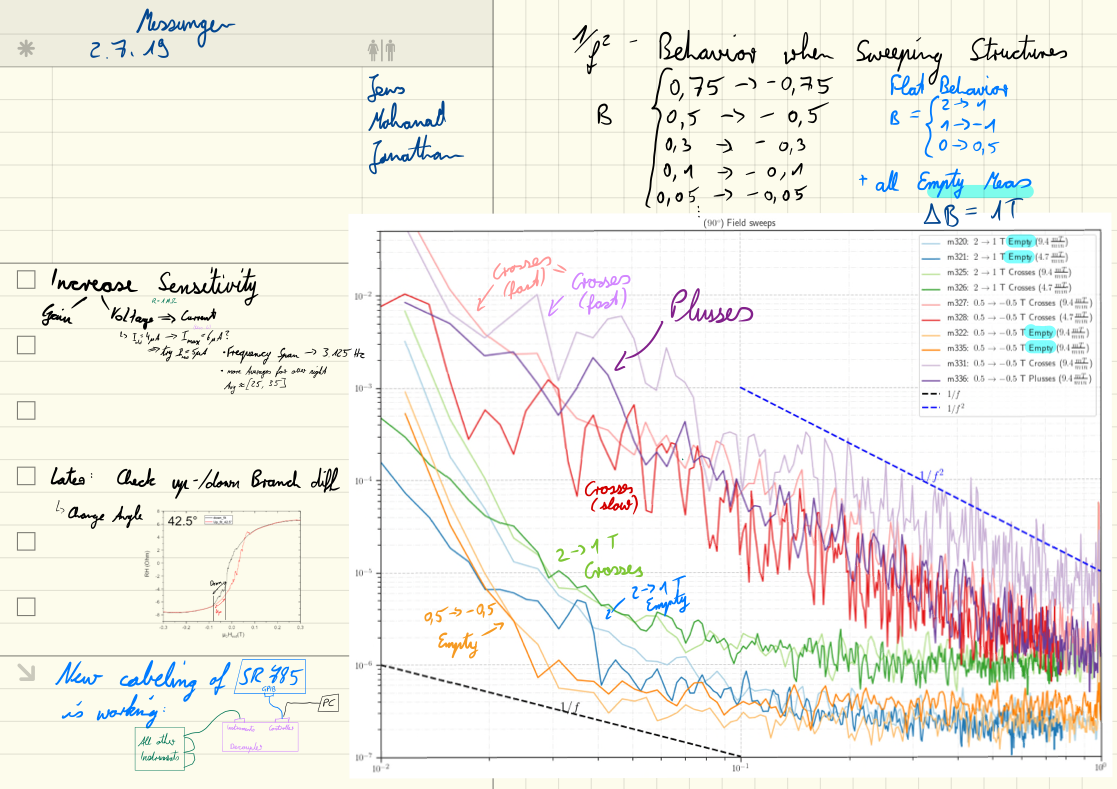 Messungen
2.7.19
Jens
Mohanad
Jonathan
1/f² - Behavior when Sweeping Structures
B
0,75 → -0,75
0,5 → - 0,5
0,3 → - 0,3
0,1 → - 0,1
0,05 → - 0,05
Flat Behavior
B =
2 → 1
1 → -1
0 → 0,5
+ all Empty Meas
ΔB = 1T
Increase Sensitivity
Gain Voltage ⇒ Current
⇒ try I = 5μA
• Frequency Span → 3,125 Hz
Avg ≈ [25, 35]
Later: Check up-/down Branch diff
↳ Change Angle
42.5°
-0.3 -0.2 -0.1 0.0 0.1 0.2 0.3
New cabeling of SR 785
is working:
GPIB
PC
Instruments Controller
Decoupler
All other
Instruments
(90°) Field sweeps
m320: 2 → 1 T Empty (9.4 mT/min)
m321: 2 → 1 T Empty (4.7 mT/min)
m325: 2 → 1 T Crosses (9.4 mT/min)
m326: 2 → 1 T Crosses (4.7 mT/min)
m327: 0.5 → −0.5 T Crosses (9.4 mT/min)
m328: 0.5 → −0.5 T Crosses (4.7 mT/min)
m322: 0.5 → −0.5 T Empty (9.4 mT/min)
m335: 0.5 → −0.5 T Empty (9.4 mT/min)
m331: 0.5 → −0.5 T Crosses (9.4 mT/min)
m336: 0.5 → −0.5 T Plusses (9.4 mT/min)
1/f
1/f²
Crosses
(fast)
Crosses
(fast)
Plusses
Crosses
(slow)
2→1 T
Crosses
2→1 T
Empty
0,5 → -0,5
Empty
1/f²
1/f
10⁻²
10⁻³
10⁻⁴
10⁻⁵
10⁻⁶
10⁻⁷
10⁻² 10⁻¹ 10⁰